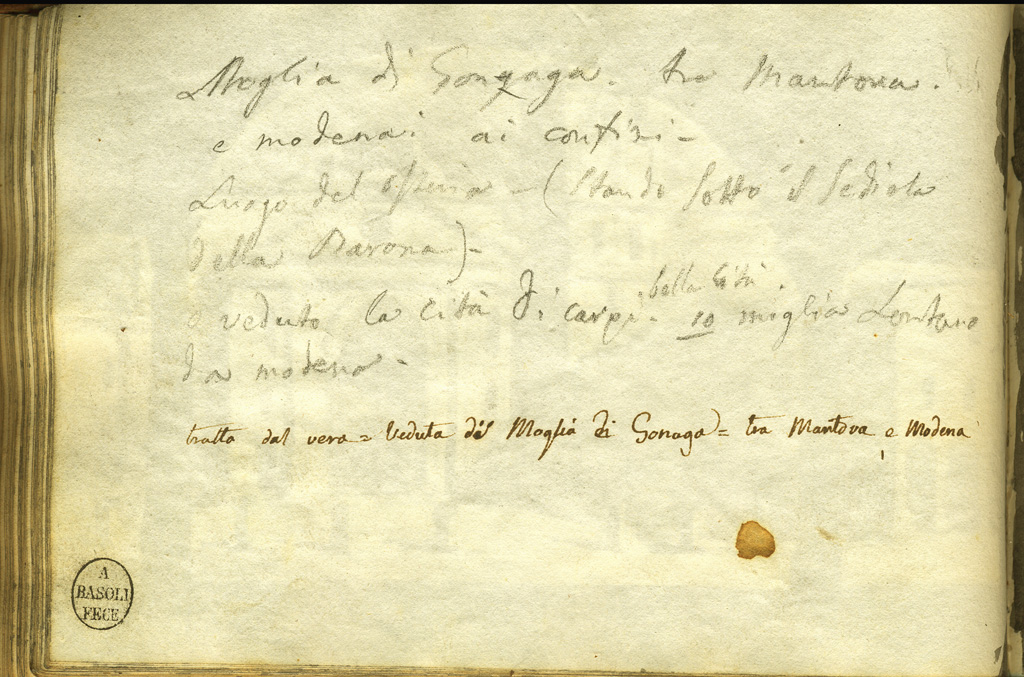 Moglia di Gonzaga. tra Mantova.
e modena: ai confini -
Luogo del osteria - (Stando sotto il Sediola
della Barona) -
o veduto la città di carpi. bella Città. 10 miglia Lontano
da modena -
tratta dal vera = Veduta di Moglia di Gonaga = tra Mantova e Modena
A
BASOLI
FECE